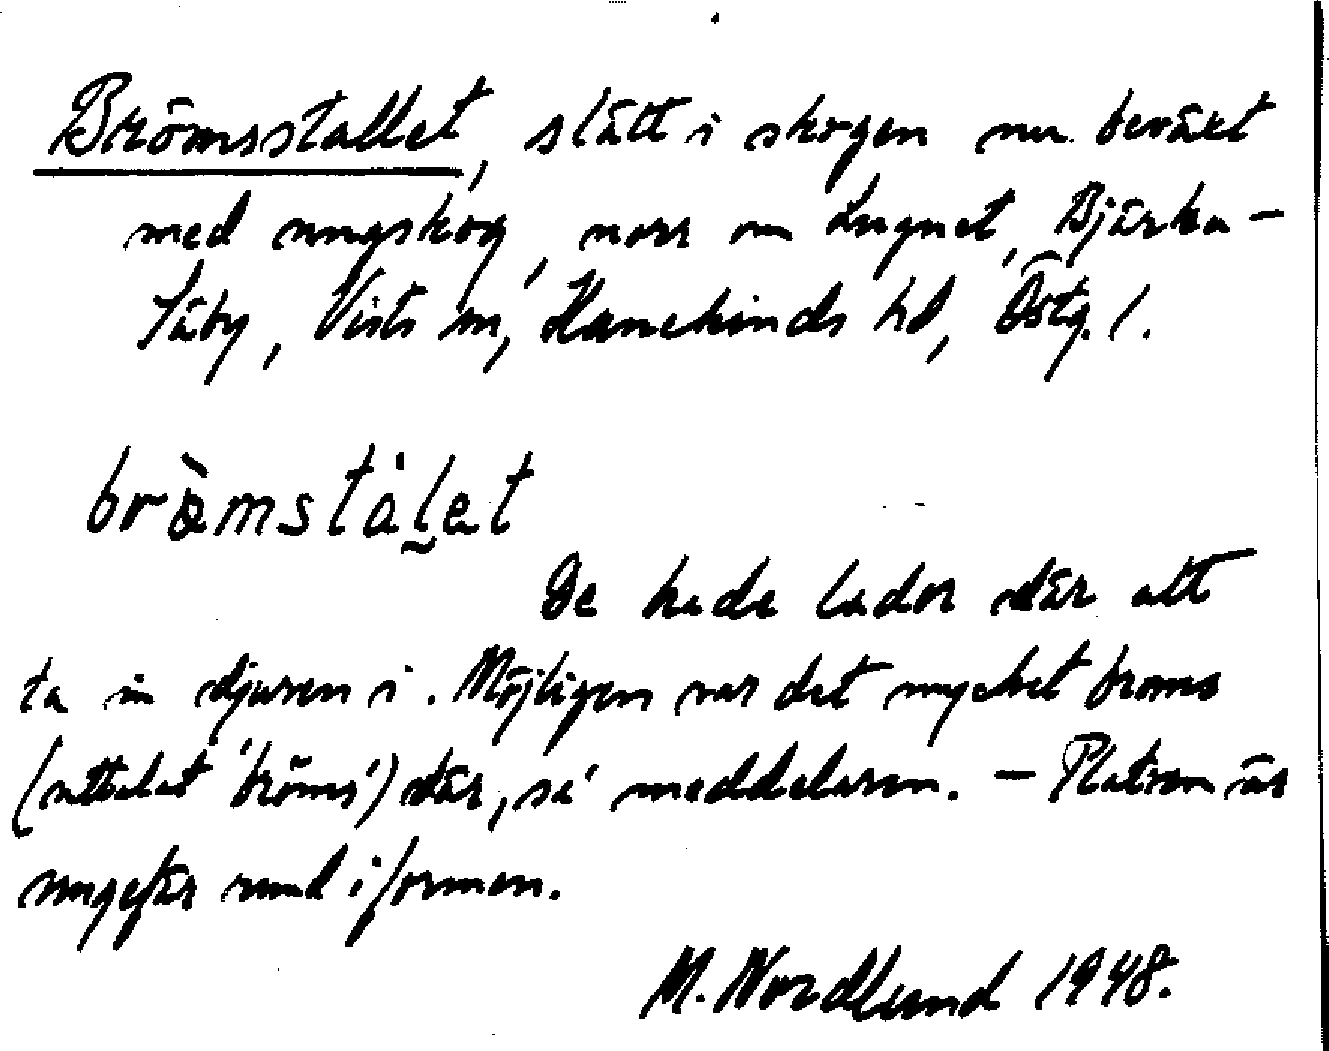 Brömsstallet, slått i skogen nu beväxt
med ungskog, norr om Lugnet, Bjärka-
Säby, Vists sn, Hanekinds hd, Östg. l.
brö̀mstȧl̬et
De hade lador där att
ta in djuren i. Möjligen var det mycket broms
(uttalat 'bröms') där, sa' meddelaren. — Platsen är
ungefär rund i formen.
M. Nordlund 1948.